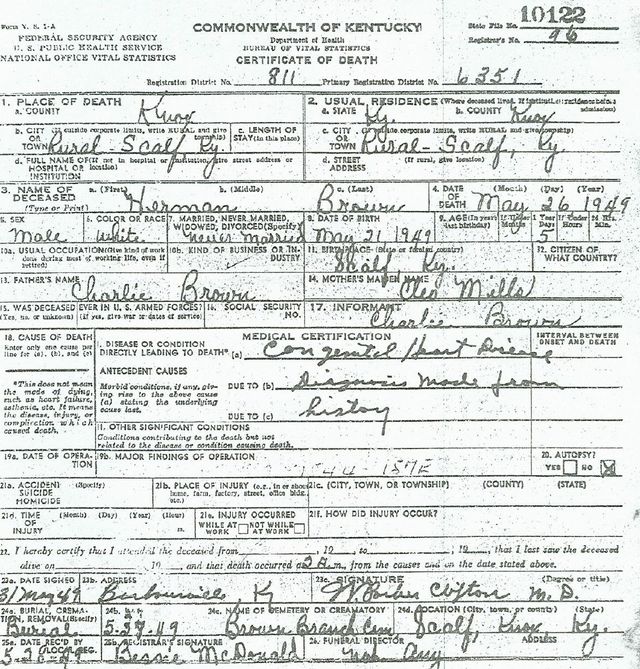 Form V. S. 1-A
FEDERAL SECURITY AGENCY
U. S. PUBLIC HEALTH SERVICE
NATIONAL OFFICE VITAL STATISTICS
COMMONWEALTH OF KENTUCKY
Department of Health
BUREAU OF VITAL STATISTICS
CERTIFICATE OF DEATH
State File No. 10122
Registrar's No. 96
Registration District No. 811 Primary Registration District No. 6351
1. PLACE OF DEATH
a. COUNTY Knox
2. USUAL RESIDENCE (Where deceased lived. If institution: residence before admission)
a. STATE Ky. b. COUNTY Knox
b. CITY (If outside corporate limits, write RURAL and give township)
OR TOWN Rural-Scalf, Ky.
c. LENGTH OF STAY (in this place)
c. CITY (If outside corporate limits, write RURAL and give township)
OR TOWN Rural-Scalf, Ky.
d. FULL NAME OF (If not in hospital or institution, give street address or location)
HOSPITAL OR INSTITUTION
d. STREET ADDRESS (If rural, give location)
3. NAME OF DECEASED (Type or Print)
a. (First) Herman b. (Middle) c. (Last) Brown
4. DATE OF DEATH (Month) (Day) (Year) May 26 1949
5. SEX Male
6. COLOR OR RACE White
7. MARRIED, NEVER MARRIED, WIDOWED, DIVORCED (Specify) Never Married
8. DATE OF BIRTH May 21 1949
9. AGE (In years last birthday) If Under 1 Year Months Days 5 If Under 24 Hrs. Hours Min.
10a. USUAL OCCUPATION (Give kind of work done during most of working life, even if retired)
10b. KIND OF BUSINESS OR INDUSTRY
11. BIRTHPLACE (State or foreign country) Scalf Ky.
12. CITIZEN OF WHAT COUNTRY?
13. FATHER'S NAME Charlie Brown
14. MOTHER'S MAIDEN NAME Cleo Mills
15. WAS DECEASED EVER IN U. S. ARMED FORCES?
(Yes, no, or unknown) (If yes, give war or dates of service)
16. SOCIAL SECURITY NO.
17. INFORMANT Charlie Brown
18. CAUSE OF DEATH
Enter only one cause per line for (a), (b), and (c)
MEDICAL CERTIFICATION
INTERVAL BETWEEN ONSET AND DEATH
I. DISEASE OR CONDITION DIRECTLY LEADING TO DEATH* (a) Congenital Heart Disease
*This does not mean the mode of dying, such as heart failure, asthenia, etc. It means the disease, injury, or complication which caused death.
ANTECEDENT CAUSES
Morbid conditions, if any, giving rise to the above cause (a) stating the underlying cause last.
DUE TO (b) Diagnosis made from
DUE TO (c) history
II. OTHER SIGNIFICANT CONDITIONS
Conditions contributing to the death but not related to the disease or condition causing death.
19a. DATE OF OPERATION
19b. MAJOR FINDINGS OF OPERATION
20. AUTOPSY?
YES NO
21a. ACCIDENT SUICIDE HOMICIDE (Specify)
21b. PLACE OF INJURY (e.g., in or about home, farm, factory, street, office bldg., etc.)
21c. (CITY, TOWN, OR TOWNSHIP) (COUNTY) (STATE)
21d. TIME OF INJURY (Month) (Day) (Year) (Hour) m.
21e. INJURY OCCURRED
WHILE AT WORK NOT WHILE AT WORK
21f. HOW DID INJURY OCCUR?
22. I hereby certify that I attended the deceased from 19 to 19, that I last saw the deceased
alive on 19 and that death occurred at m., from the causes and on the date stated above.
23a. DATE SIGNED 31 May 49
23b. ADDRESS Barbourville, Ky
23c. SIGNATURE Clifton M. D. (Degree or title)
24a. BURIAL, CREMATION, REMOVAL (Specify) Burial
24b. 5-27-49
24c. NAME OF CEMETERY OR CREMATORY Brown Branch Cem
24d. LOCATION (City, town, or county) (State) Scalf, Knox Ky.
25a. DATE REC'D BY LOCAL REG.
25b. REGISTRAR'S SIGNATURE Bessie McDonald
26. FUNERAL DIRECTOR ADDRESS